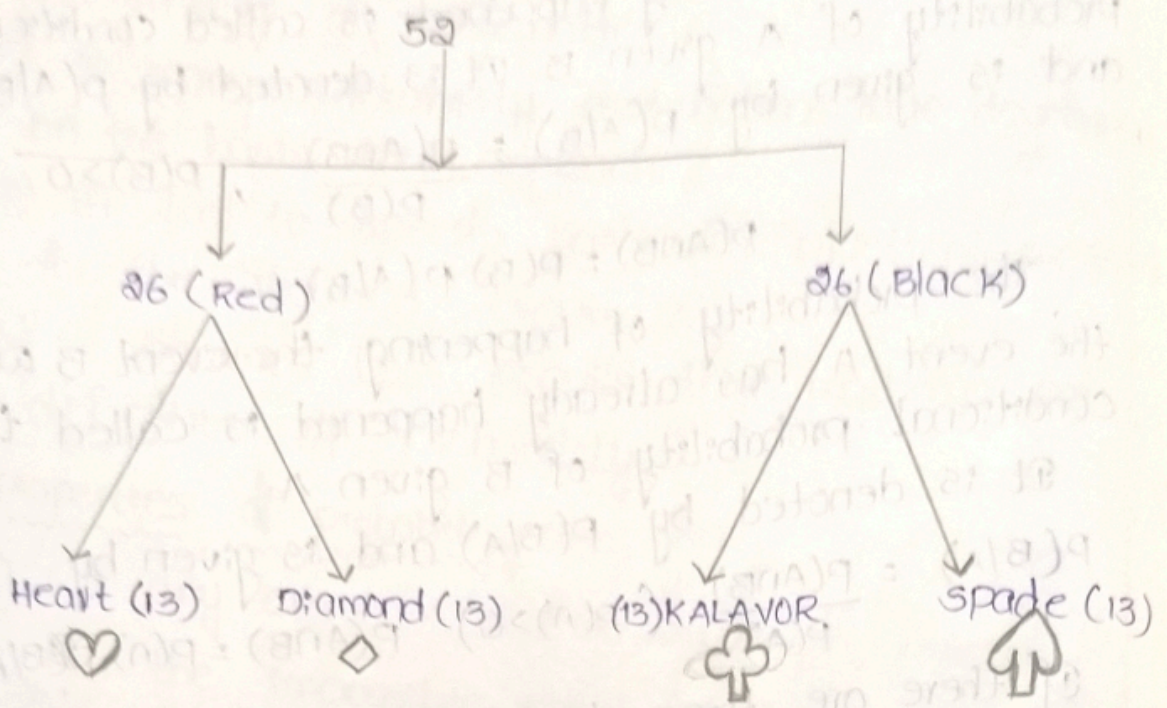 52
26 (Red) 26 (Black)
Heart (13) Diamond (13) (13) KALAVOR. Spade (13)